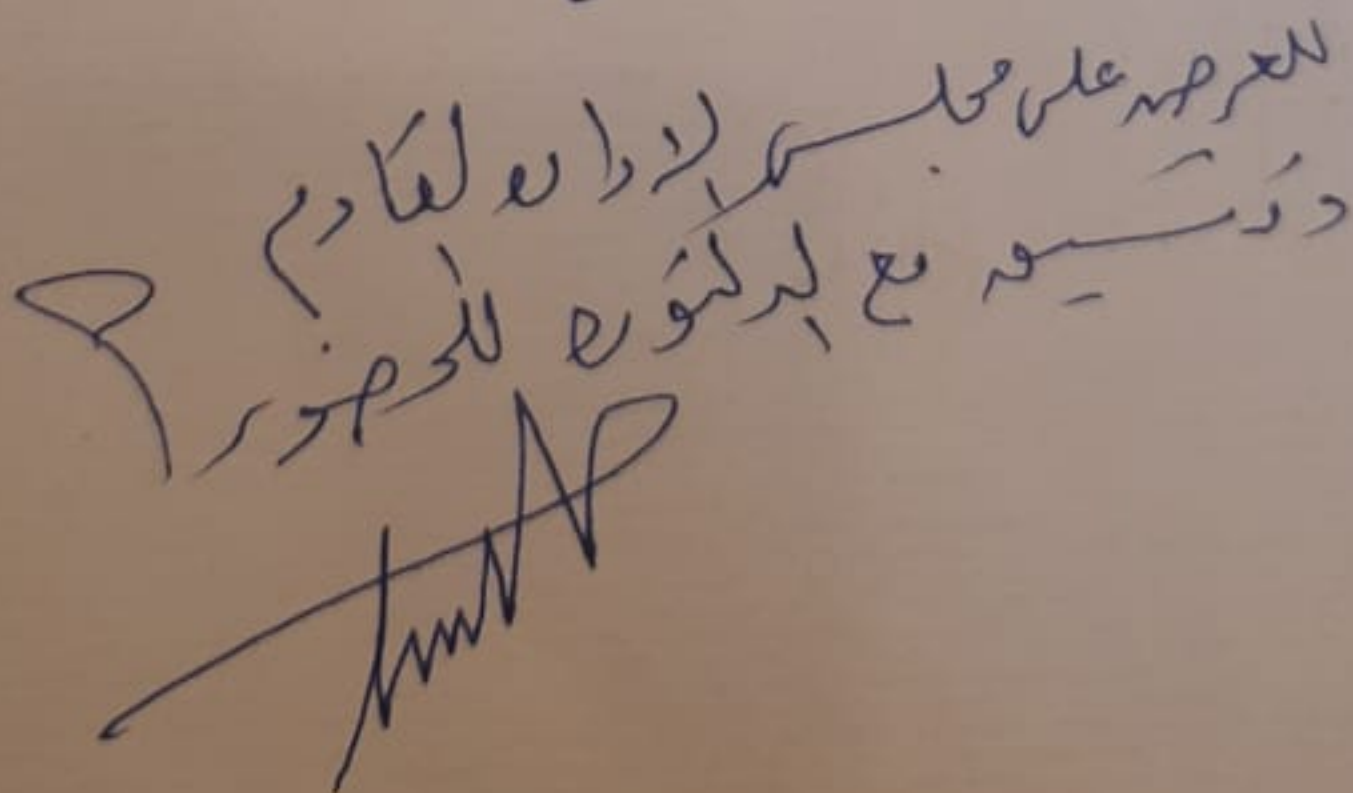 للعرض على مجلس الادارة القادم
وتنسيق مع الدكتورة للحضور